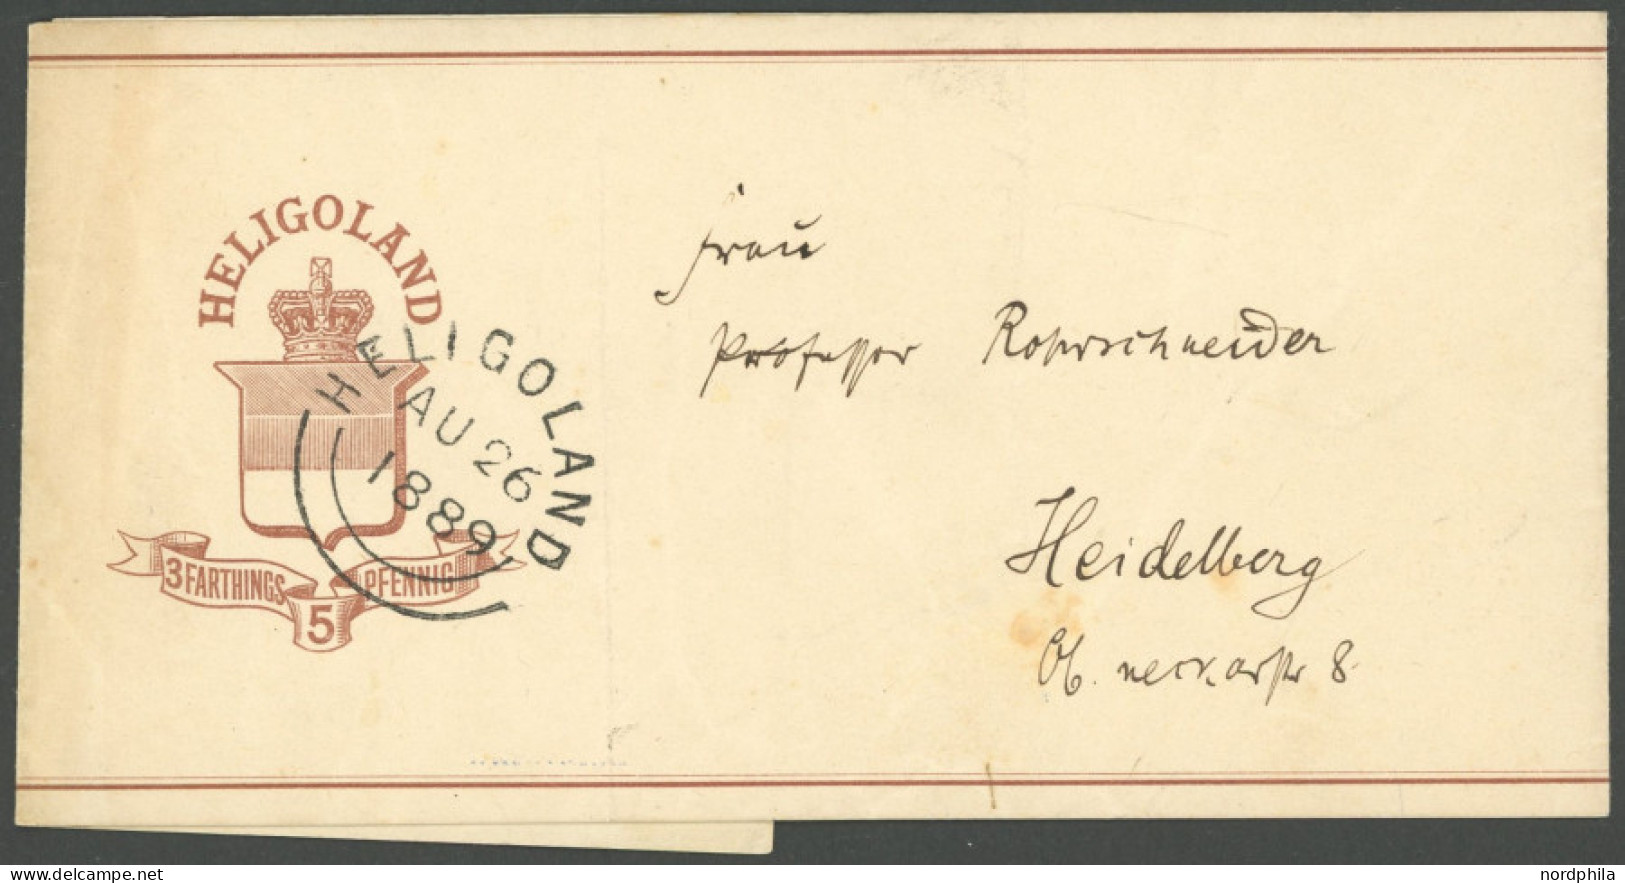 HELIGOLAND
3 FARTHINGS
5
PFENNIG
HELIGOLAND
AU 26
1889
Frau
Professor Rohrschneider
Heidelberg
Ob. neckarstr 8
www.delcampe.net
nordphila